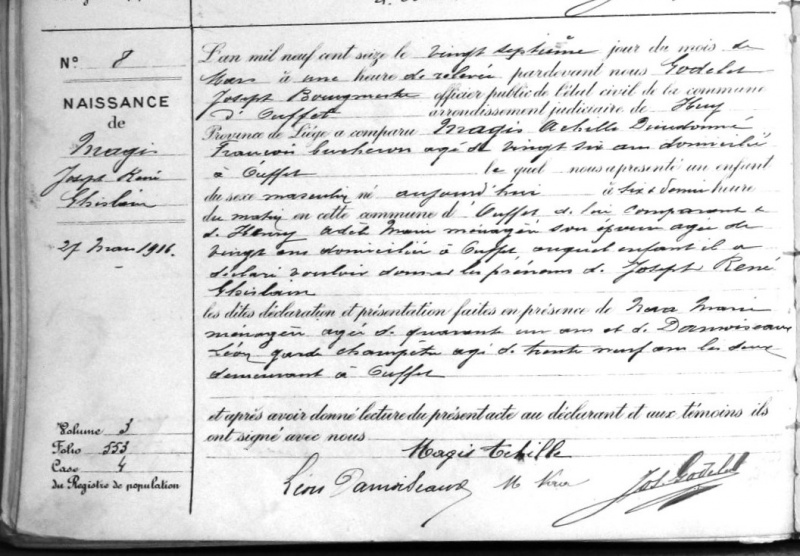 N° 8
NAISSANCE
de
Magis
Joseph René
Ghislain
27 Mars 1916.
Volume 3
Folio 553
Case 4
du Registre de population
L'an mil neuf cent seize le vingt septième jour du mois de
Mars à une heure de relevée pardevant nous Godelet
Joseph Bourgmestre officier public de l'état civil de la commune
d'Ouffet arrondissement judiciaire de Huy
Province de Liége a comparu Magis Achille Dieudonné
François bucheron agé de vingt six ans domicilié
à Ouffet le quel nous a présenté un enfant
du sexe masculin né aujourd'hui à six & demi heure
du matin en cette commune d'Ouffet de lui comparant &
de Henry Marie ménagère son épouse agée de
vingt ans domiciliée à Ouffet auquel enfant il a
déclaré vouloir donner les prénoms de Joseph René
Ghislain
les dites déclaration et présentation faites en présence de Marie
ménagère agée de quarante un ans et de Damoiseaux
Léon garde champêtre agé de trente neuf ans les deux
demeurant à Ouffet
et après avoir donné lecture du présent acte au déclarant et aux témoins ils
ont signé avec nous
Magis Achille
Léon Damoiseaux M Jos. Godelet